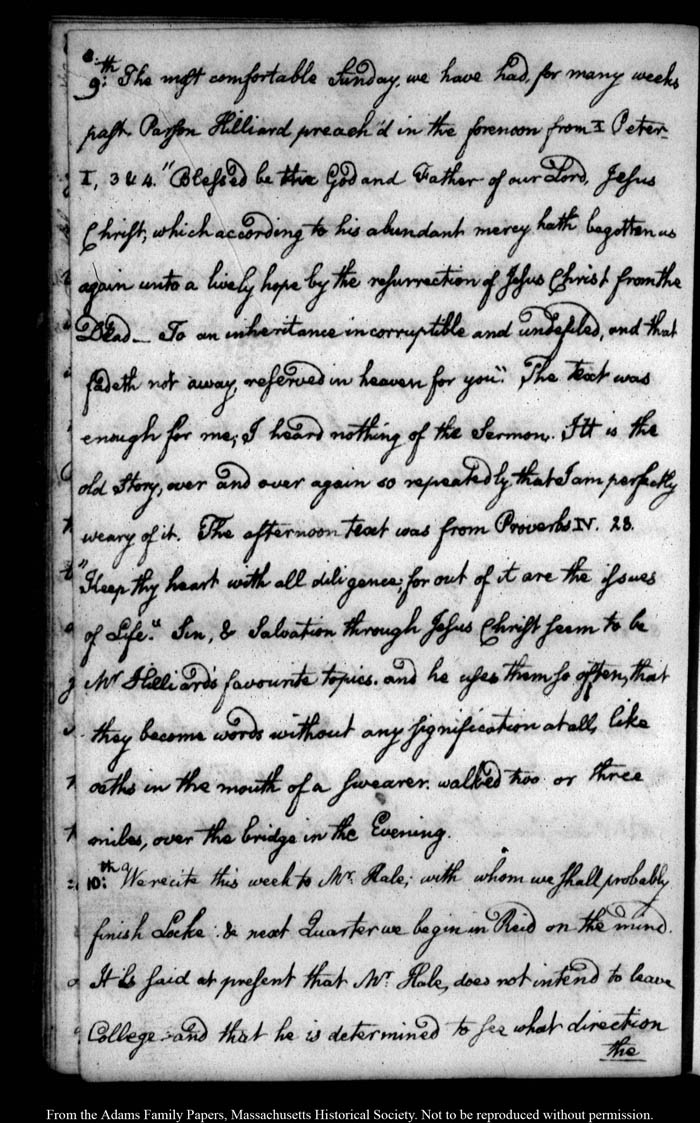 9:th The most comfortable Sunday, we have had, for many weeks
past. Parson Hilliard preach'd in the forenoon from I Peter
I, 3 & 4. "Blessed be the God and Father of our Lord, Jesus
Christ, which according to his abundant mercy hath begotten us
again unto a lively hope by the resurrection of Jesus Christ from the
Dead — To an inheritance incorruptible and undefiled, and that
fadeth not away, reserved in heaven for you." The text was
enough for me; I heard nothing of the Sermon. Itt is the
old Story, over and over again so repeatedly, that I am perfectly
weary of it. The afternoon text was from Proverbs IV. 23.
"Keep thy heart with all diligence, for out of it are the issues
of Life." Sin, & Salvation through Jesus Christ seem to be
Mr Hilliard's favourite topics. and he uses them so often, that
they become words without any signification at all, like
oaths in the mouth of a swearer. walked two or three
miles, over the bridge in the Evening.
10:th We recite this week to Mr. Hale; with whom we shall probably
finish Locke: & next Quarter we begin in Reid on the mind.
It is said at present that Mr. Hale, does not intend to leave
College: and that he is determined to see what direction
the
From the Adams Family Papers, Massachusetts Historical Society. Not to be reproduced without permission.